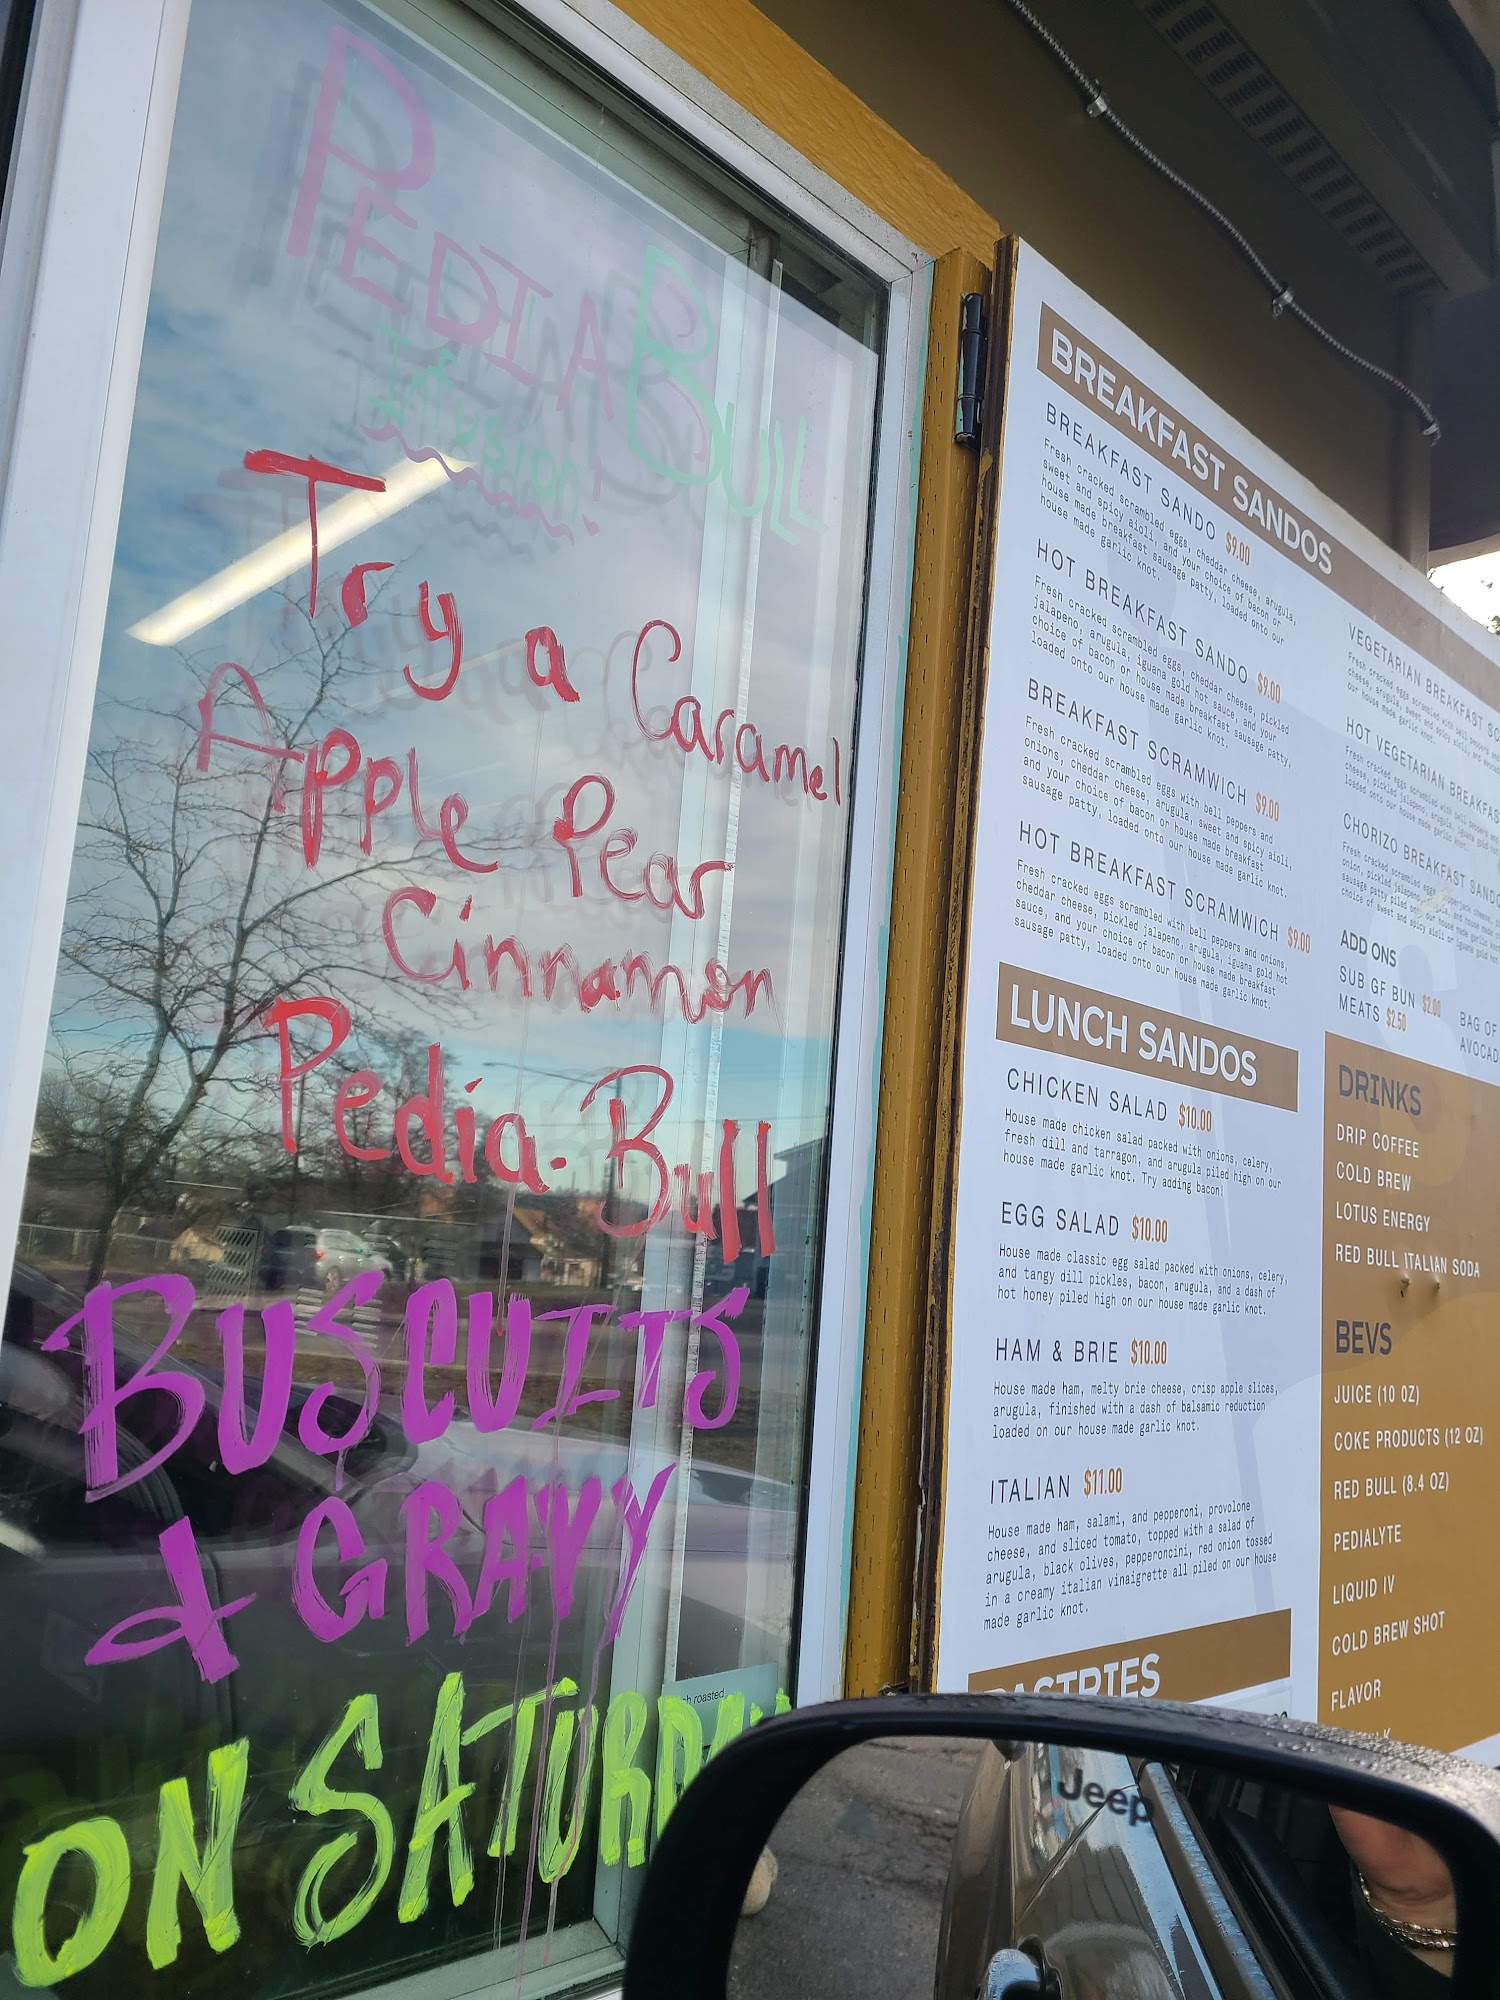 PEDIABULL
Infusion!
Try a Caramel
Apple Pear
Cinnamon
Pedia-Bull
BUSCUITS
& GRAVY
ON SATURDAY
sh roasted
BREAKFAST SANDOS
BREAKFAST SANDO $9.00
Fresh cracked scrambled eggs, cheddar cheese, arugula,
sweet and spicy aioli, and your choice of bacon or
house made breakfast sausage patty, loaded onto our
house made garlic knot.
HOT BREAKFAST SANDO $9.00
Fresh cracked scrambled eggs, cheddar cheese, pickled
jalapeno, arugula, iguana gold hot sauce, and your
choice of bacon or house made breakfast sausage patty,
loaded onto our house made garlic knot.
BREAKFAST SCRAMWICH $9.00
Fresh cracked scrambled eggs with bell peppers and
onions, cheddar cheese, arugula, sweet and spicy aioli,
and your choice of bacon or house made breakfast
sausage patty, loaded onto our house made garlic knot.
HOT BREAKFAST SCRAMWICH $9.00
Fresh cracked eggs scrambled with bell peppers and onions,
cheddar cheese, pickled jalapeno, arugula, iguana gold hot
sauce, and your choice of bacon or house made breakfast
sausage patty, loaded onto our house made garlic knot.
LUNCH SANDOS
CHICKEN SALAD $10.00
House made chicken salad packed with onions, celery,
fresh dill and tarragon, and arugula piled high on our
house made garlic knot. Try adding bacon!
EGG SALAD $10.00
House made classic egg salad packed with onions, celery,
and tangy dill pickles, bacon, arugula, and a dash of
hot honey piled high on our house made garlic knot.
HAM & BRIE $10.00
House made ham, melty brie cheese, crisp apple slices,
arugula, finished with a dash of balsamic reduction
loaded on our house made garlic knot.
ITALIAN $11.00
House made ham, salami, and pepperoni, provolone
cheese, and sliced tomato, topped with a salad of
arugula, black olives, pepperoncini, red onion tossed
in a creamy italian vinaigrette all piled on our house
made garlic knot.
PASTRIES
VEGETARIAN BREAKFAST
Fresh cracked eggs scrambled with bell peppers
cheese, arugula, sweet and spicy aioli
our house made garlic knot.
HOT VEGETARIAN BREAKFAS
Fresh cracked eggs scrambled with bell peppers
cheese, pickled jalapeno, arugula, iguana gold hot
loaded onto our house made garlic knot.
CHORIZO BREAKFAST SANDO
Fresh cracked scrambled eggs,
onion, pickled jalapeno
sausage patty piled on our house made garlic
choice of sweet and spicy aioli or iguana gold hot
ADD ONS
SUB GF BUN $2.00
MEATS $2.50
BAG OF
AVOCAD
DRINKS
DRIP COFFEE
COLD BREW
LOTUS ENERGY
RED BULL ITALIAN SODA
BEVS
JUICE (10 OZ)
COKE PRODUCTS (12 OZ)
RED BULL (8.4 OZ)
PEDIALYTE
LIQUID IV
COLD BREW SHOT
FLAVOR
Jeep